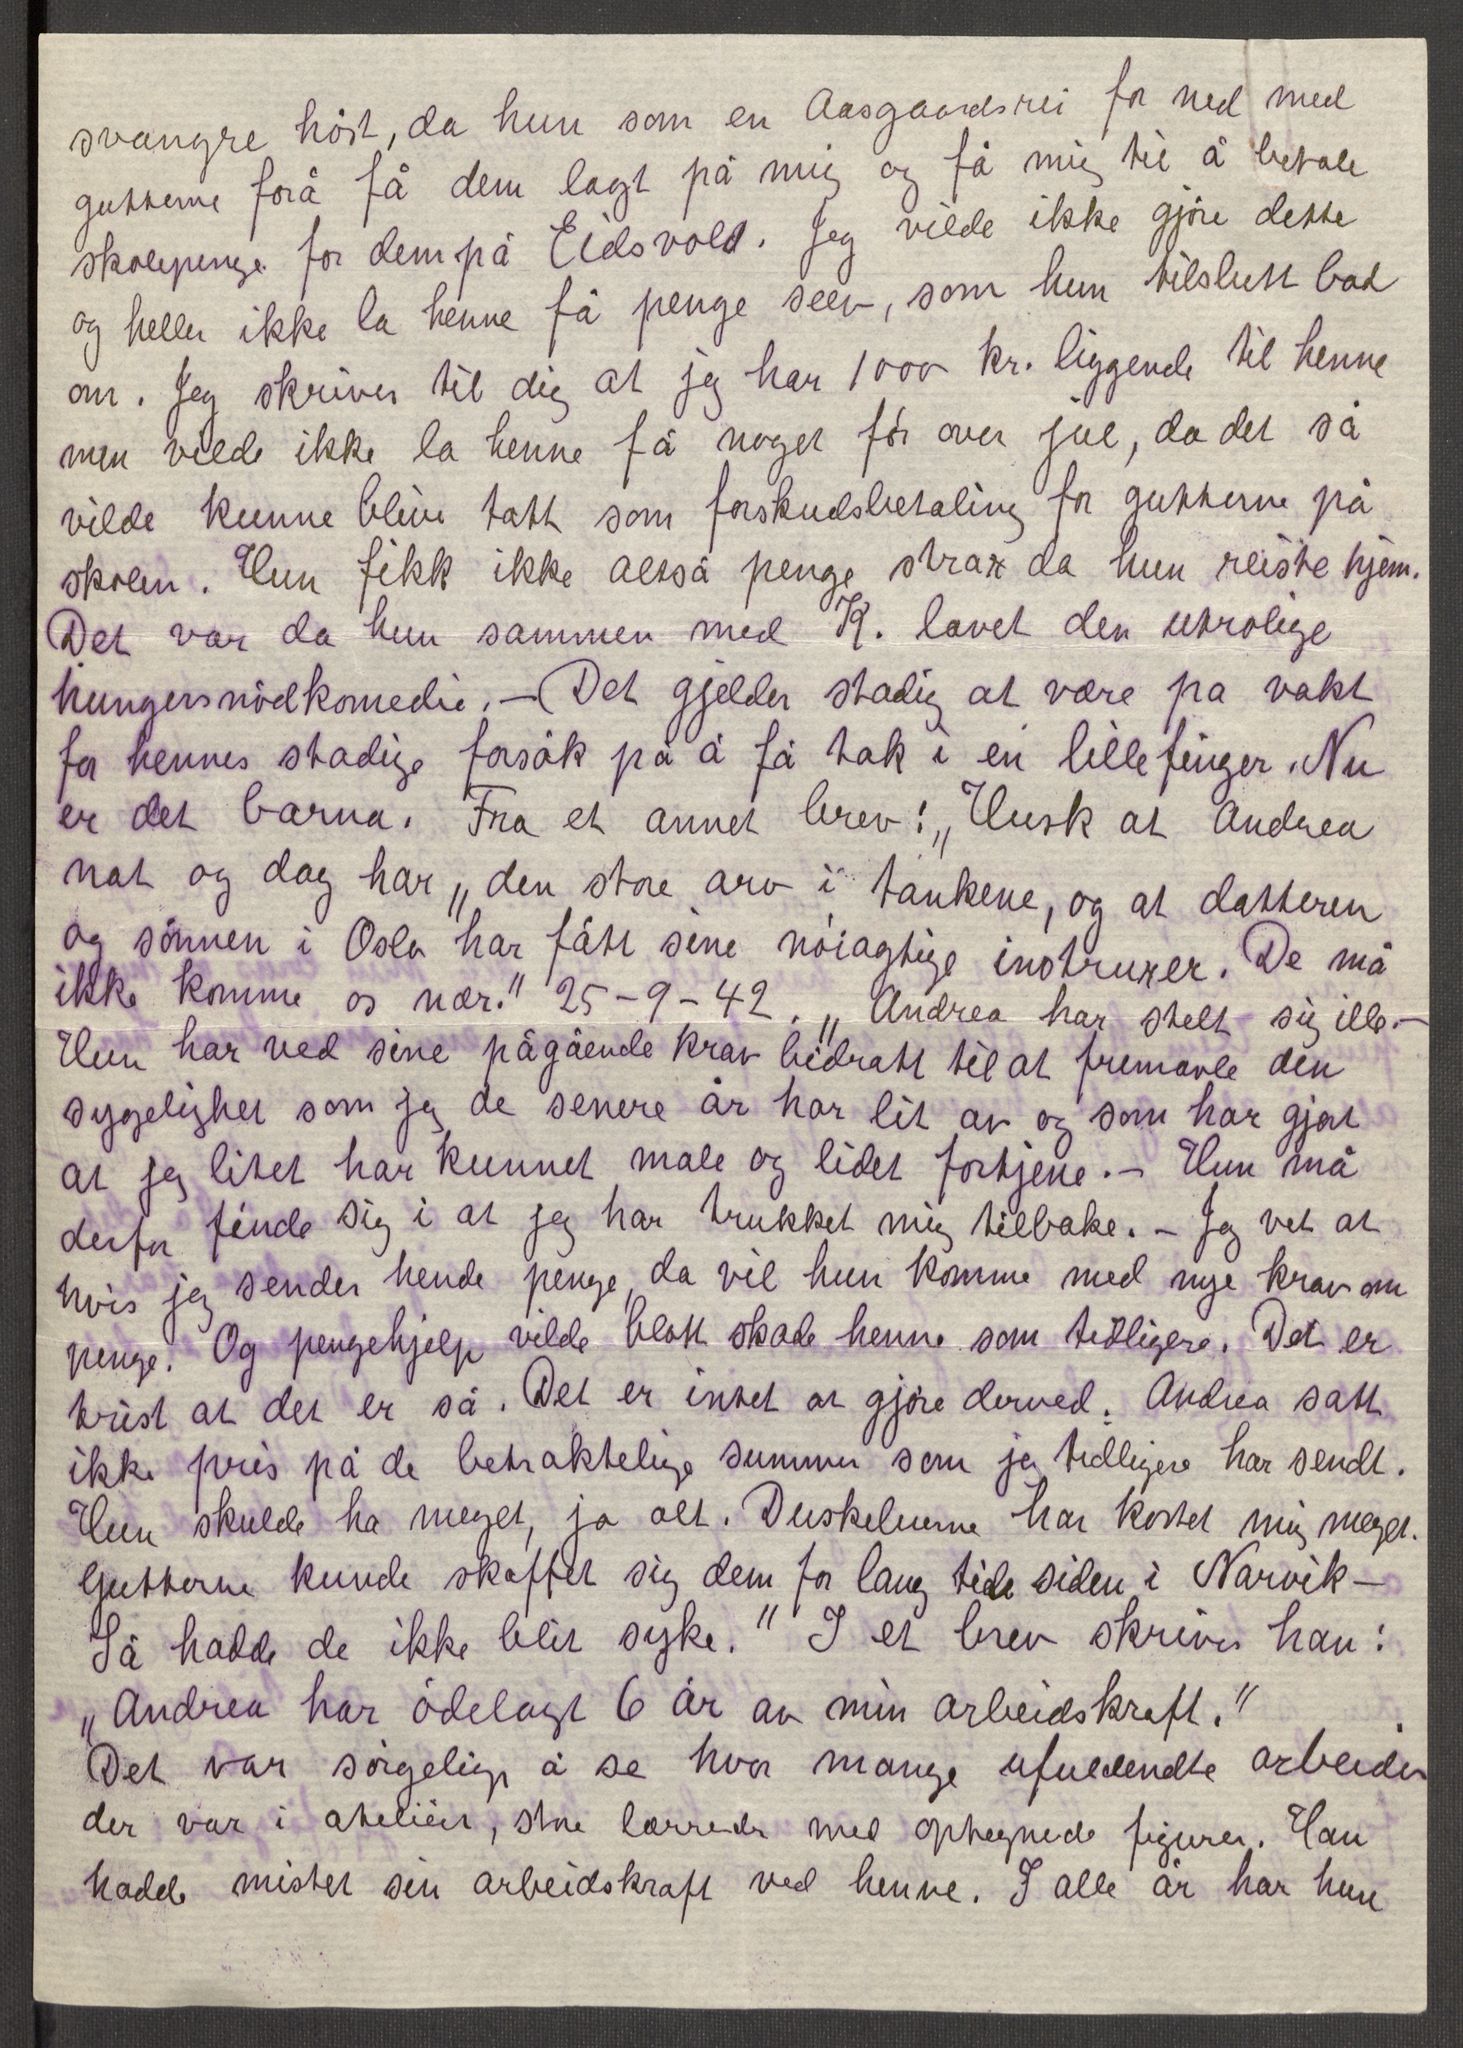 svangre höst, da hun som en Aasgaardsrei for ned med
gutterne forå få dem lagt på mig og få mig til å betale
skolepenge for dem på Eidsvold. Jeg vilde ikke gjöre dette
og heller ikke la henne få penge selv, som hun tilslutt bad
om. Jeg skriver til dig at jeg har 1000 kr. liggende til henne
men vilde ikke la henne få noget för over jul, da det så
vilde kunne blive tatt som forskudsbetaling for gutterne på
skolen. Hun fikk ikke altså penge strax da hun reiste hjem.
Det var da hun sammen med K. lavet den utrolige
hungersnödkomedie. — Det gjelder stadig at være pa vakt
for hennes stadige forsök på å få tak i en lillefinger. Nu
er det barna. Fra et annet brev: „Husk at Andrea
nat og dag har „den store arv i tankene, og at datteren
og sönnen i Oslo har fått sine nöiagtige instruxer. De må
ikke komme os nær." 25-9-42. „Andrea har stelt sig ille. —
Hun har ved sine pågående krav bidratt til at fremavle den
sygelighet som jeg de senere år har lit av og som har gjort
at jeg litet har kunnet male og lidet fortjene. — Hun må
derfor finde sig i at jeg har trukket mig tilbake. — Jeg vet at
hvis jeg sender hende penge, da vil hun komme med nye krav om
penge. Og pengehjelp vilde blott skade henne som tidligere. Det er
trist at det er så. Det er intet at gjöre derved. Andrea satt
ikke pris på de betraktelige summer som jeg tidligere har sendt.
Hun skulde ha meget, ja alt. Duskeluerne har kostet mig meget.
Gutterne kunde skaffet sig dem for lang tid siden i Narvik —
Så hadde de ikke blit syke." I et brev skriver han:
„Andrea har ödelagt 6 år av min arbeidskraft."
Det var sörgelig å se hvor mange ufuldendte arbeider
der var i ateliér, store lærreder med optegnede figurer. Han
hadde mistet sin arbeidskraft ved henne. I alle år har hun